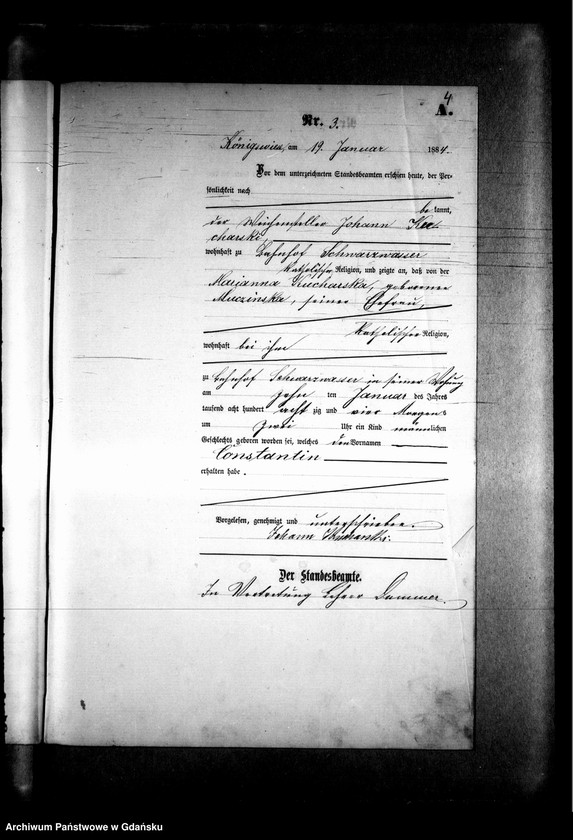 4
A.
Nr. 3.
Königswiese, am 19. Januar 1884.
Vor dem unterzeichneten Standesbeamten erschien heute, der Per-
sönlichkeit nach
bekannt,
der Weichensteller Johann Ku-
charski,
wohnhaft zu Bahnhof Schwarzwasser
katholischer Religion, und zeigte an, daß von der
Marianna Kucharska, geborene
Muczinska, seiner Ehefrau,
katholischer Religion,
wohnhaft bei ihm
zu Bahnhof Schwarzwasser in seiner Wohnung
am zehn ten Januar des Jahres
tausend acht hundert acht zig und vier Morgens
um zwei Uhr ein Kind männlichen
Geschlechts geboren worden sei, welches den Vornamen
Constantin
erhalten habe.
Vorgelesen, genehmigt und unterschrieben.
Johann Kucharski.
Der Standesbeamte.
In Vertretung Dammer.
Archiwum Państwowe w Gdańsku